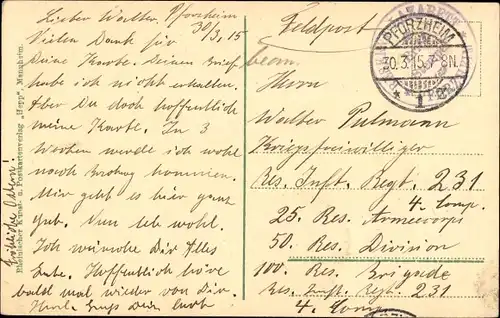 Lieber Walter, Pforzheim
30/3. 15
Vielen Dank für
Deine Karte. Deinen Brief
habe ich nicht erhalten.
Aber Du doch hoffentlich
meine Karte. In 3
Wochen werde ich wohl
nach kommen.
Mir geht es hier ganz
gut. Nun leb wohl.
Ich wünsche Dir Alles
Gute. Hoffentlich höre
bald mal wieder von Dir.
Herzl. Gruß Dein
Fröhliche Ostern!
Rheinischer Kunst- u. Postkartenverlag „Hepp", Mannheim.
Feldpost
LAZARETT
PFORZHEIM
30.3.15.7-8N.
* 1 *
Herrn
Walter Pulmann
Kriegsfreiwilliger
Res. Inft. Regt. 231
4. Comp.
25. Res. Armeecorps
50. Res. Division
100. Res. Brigade
Res. Inft. Regt. 231
4. Comp.